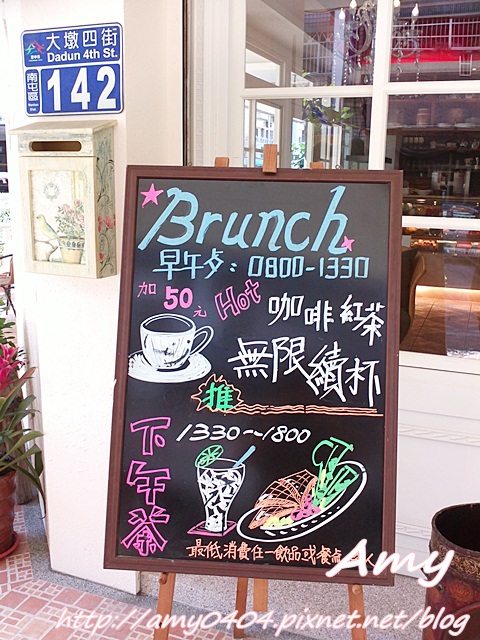 大墩四街
Dadun 4th St.
南屯區
142
Brunch
早午夕：0800-1330
加50元 Hot 咖啡 紅茶
無限續杯
推
下午茶
1330~1800
最低消費任一飲品或餐點
Amy
Amy
http://amy0404.pixnet.net/blog